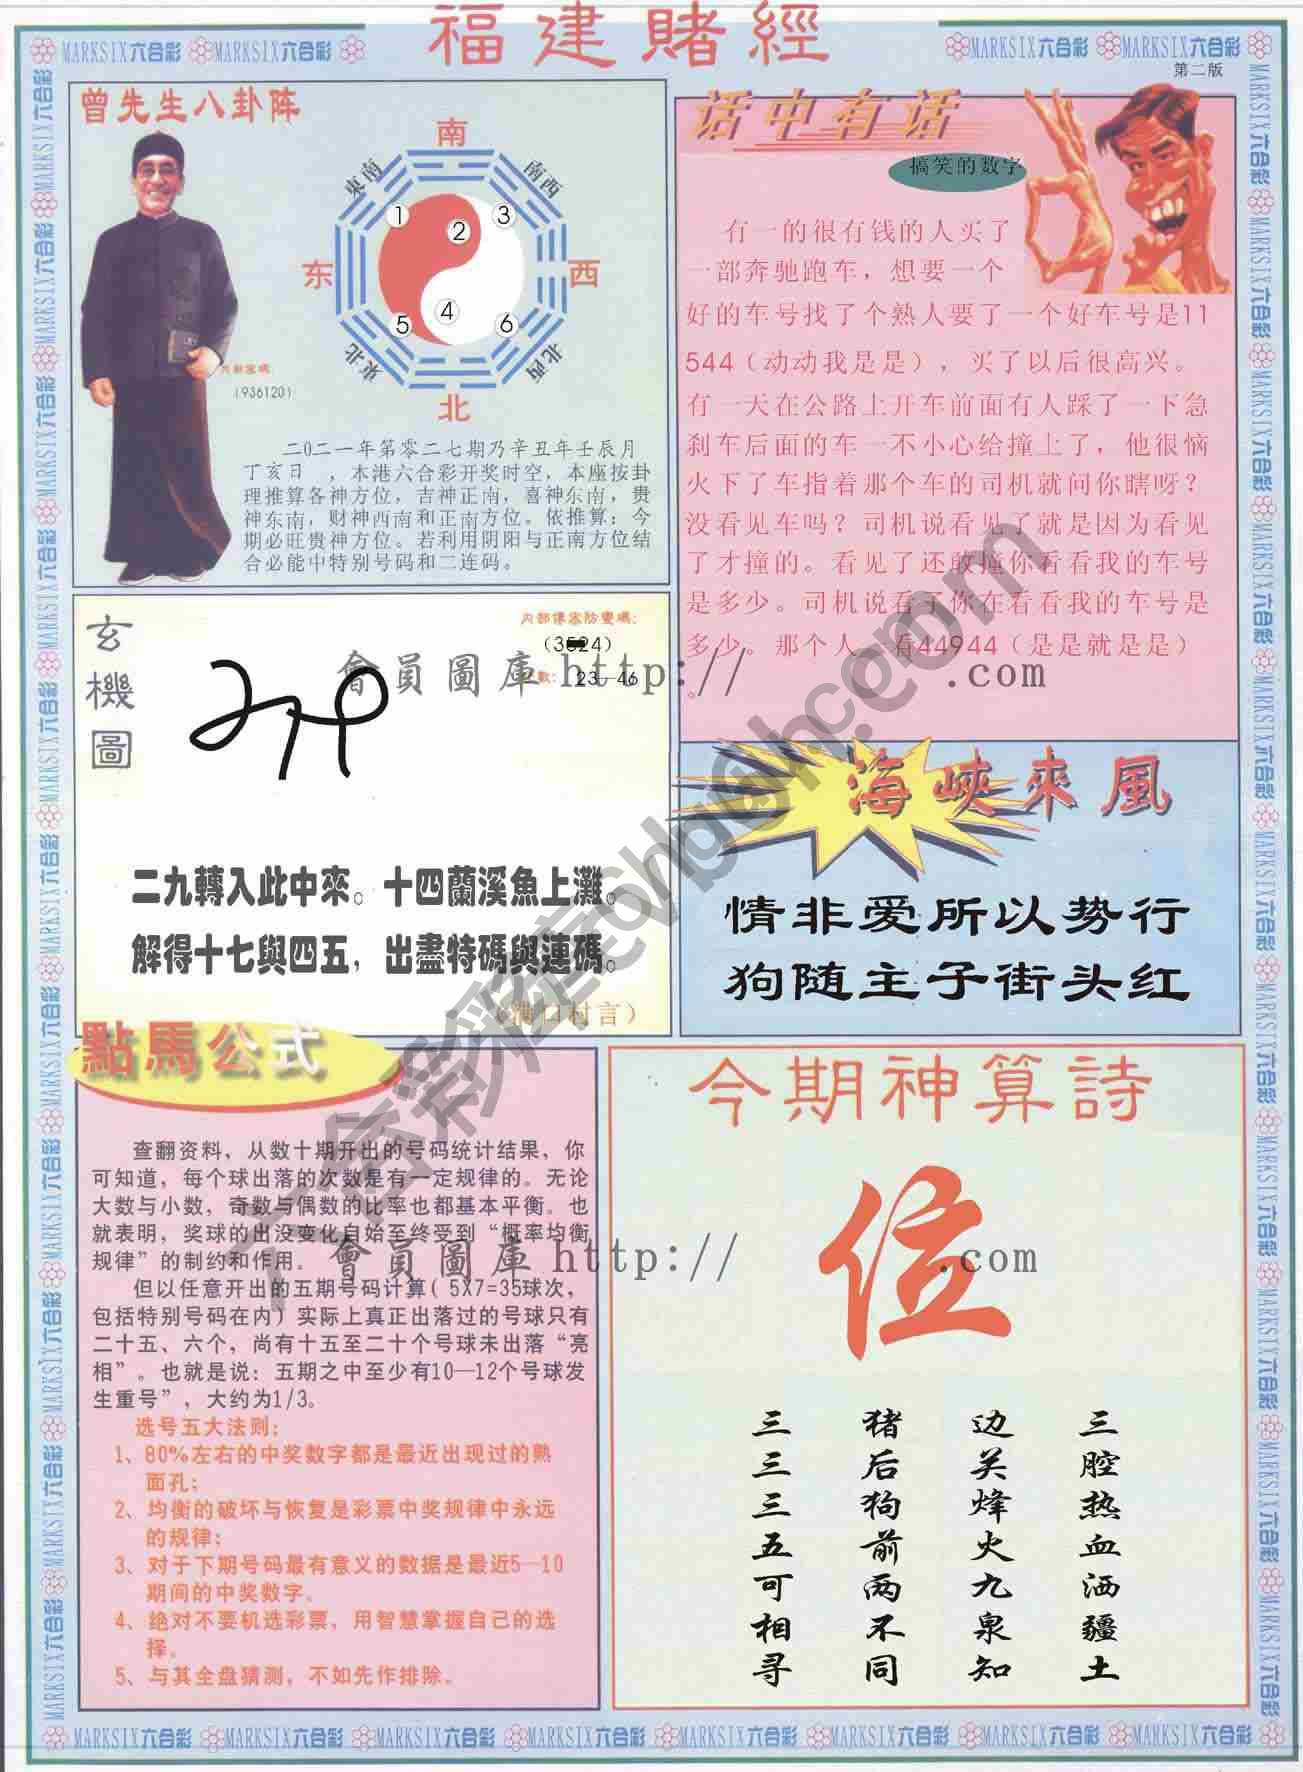 福建賭經
MARKSIX六合彩 MARKSIX六合彩
MARKSIX六合彩 MARKSIX六合彩
第二版
曾先生八卦阵
南
東南
南西
东
西
東北
北西
北
1
2
3
4
5
6
(936120)
二O二一年第零二七期乃辛丑年壬辰月
丁亥日 ，本港六合彩开奖时空，本座按卦
理推算各神方位，吉神正南，喜神东南，贵
神东南，财神西南和正南方位。依推算：今
期必旺贵神方位。若利用阴阳与正南方位结
合必能中特别号码和二连码。
话中有话
搞笑的数字
有一的很有钱的人买了
一部奔驰跑车，想要一个
好的车号找了个熟人要了一个好车号是11
544（动动我是是），买了以后很高兴。
有一天在公路上开车前面有人踩了一下急
刹车后面的车一不小心给撞上了，他很恼
火下了车指着那个车的司机就问你瞎呀？
没看见车吗？司机说看见了就是因为看见
了才撞的。看见了还敢撞你看看我的车号
是多少。司机说看了你在看看我的车号是
多少。那个人一看44944（是是就是是）
。
玄機圖
23—46
二九轉入此中來。十四蘭溪魚上灘。
解得十七與四五，出盡特碼與連碼。
會員圖庫 http:// .com
海峽來風
情非爱所以势行
狗随主子街头红
點馬公式
查翻资料，从数十期开出的号码统计结果，你
可知道，每个球出落的次数是有一定规律的。无论
大数与小数，奇数与偶数的比率也都基本平衡。也
就表明，奖球的出没变化自始至终受到“概率均衡
规律”的制约和作用。
但以任意开出的五期号码计算( 5X7=35球次，
包括特别号码在内）实际上真正出落过的号球只有
二十五、六个，尚有十五至二十个号球未出落“亮
相”。也就是说：五期之中至少有10—12个号球发
生重号”，大约为1/3。
选号五大法则：
1、80%左右的中奖数字都是最近出现过的熟
面孔；
2、均衡的破坏与恢复是彩票中奖规律中永远
的规律；
3、对于下期号码最有意义的数据是最近5—10
期间的中奖数字。
4、绝对不要机选彩票，用智慧掌握自己的选
择。
5、与其全盘猜测，不如先作排除。
會員圖庫 http:// .com
今期神算詩
位
三腔热血洒疆土
边关烽火九泉知
猪后狗前两不同
三三三五可相寻
MARKSIX六合彩 MARKSIX六合彩 MARKSIX六合彩 MARKSIX六合彩 MARKSIX六合彩 MARKSIX六合彩 MARKSIX六合彩 MARKSIX六合彩